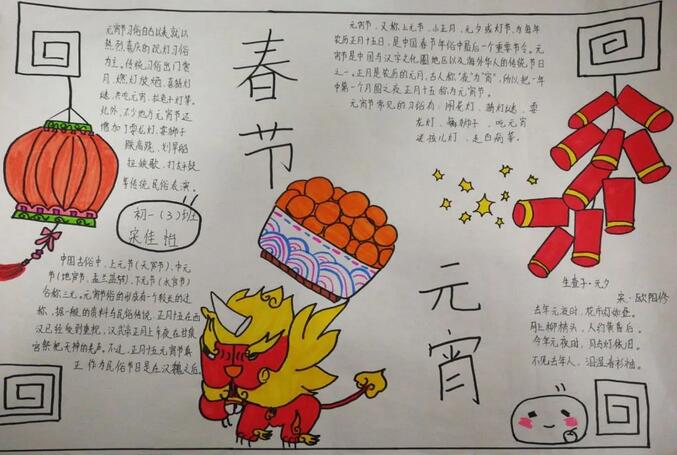 元宵节习俗自古以来就以
热烈喜庆的观灯习俗
为主。传统习俗出门赏
月、燃灯放焰、喜猜灯
谜、共吃元宵、拉兔子灯等。
此外、不少地方元宵节还
增加了耍龙灯、耍狮子
踩高跷、划旱船
扭秧歌、打太
等传统民俗表演。
春节
元宵节,又称上元节、小正月、元夕或灯节,为每年
农历正月十五日,是中国春节年俗中最后一个重要节令。元
宵节是中国与汉字文化圈地区以及海外华人的传统节日
之一。正月是农历的元月,古人称"夜"为"宵",所以把一年
中第一个月圆之夜正月十五称为元宵节。
元宵节常见的习俗有:闹花灯、猜灯谜、耍
龙灯、舞狮子、吃元宵
迎孩儿灯、走百病等。
初一(3)班
宋佳怡
中国古俗中,上元节(天官节)、中元
节(地官节、盂兰盆节)、下元节(水官节)
合称三元。元宵节俗的形成有一个较长的过
程,据一般的资料与民俗传说,正月十五在西
汉已经受到重视,汉武帝正月上辛夜在甘泉
宫祭祀天神的先声。不过,正月十五元宵节真
正作为民俗节日是在汉魏之后。
元宵
生查子·元夕
宋·欧阳修
去年元夜时,花市灯如昼。
月上柳梢头,人约黄昏后。
今年元夜时,月与灯依旧。
不见去年人,泪湿春衫袖。